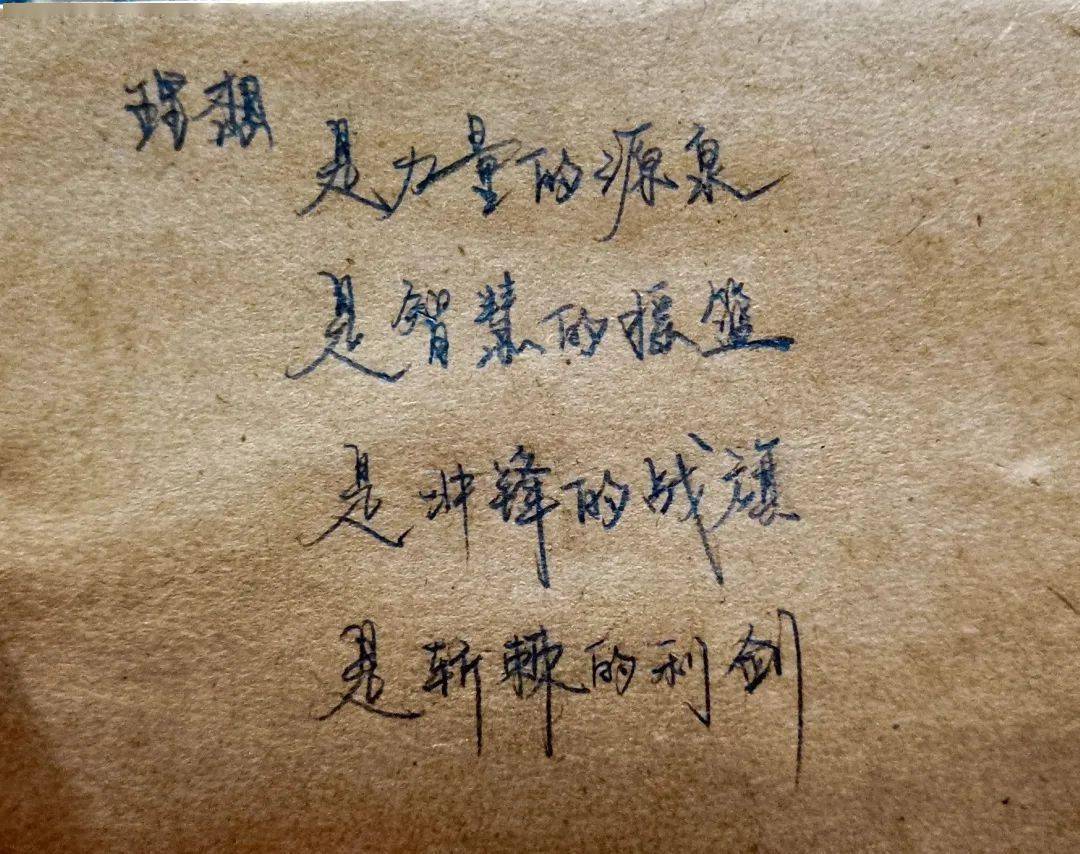 理想
是力量的源泉
是智慧的摇篮
是冲锋的战旗
是斩棘的利剑